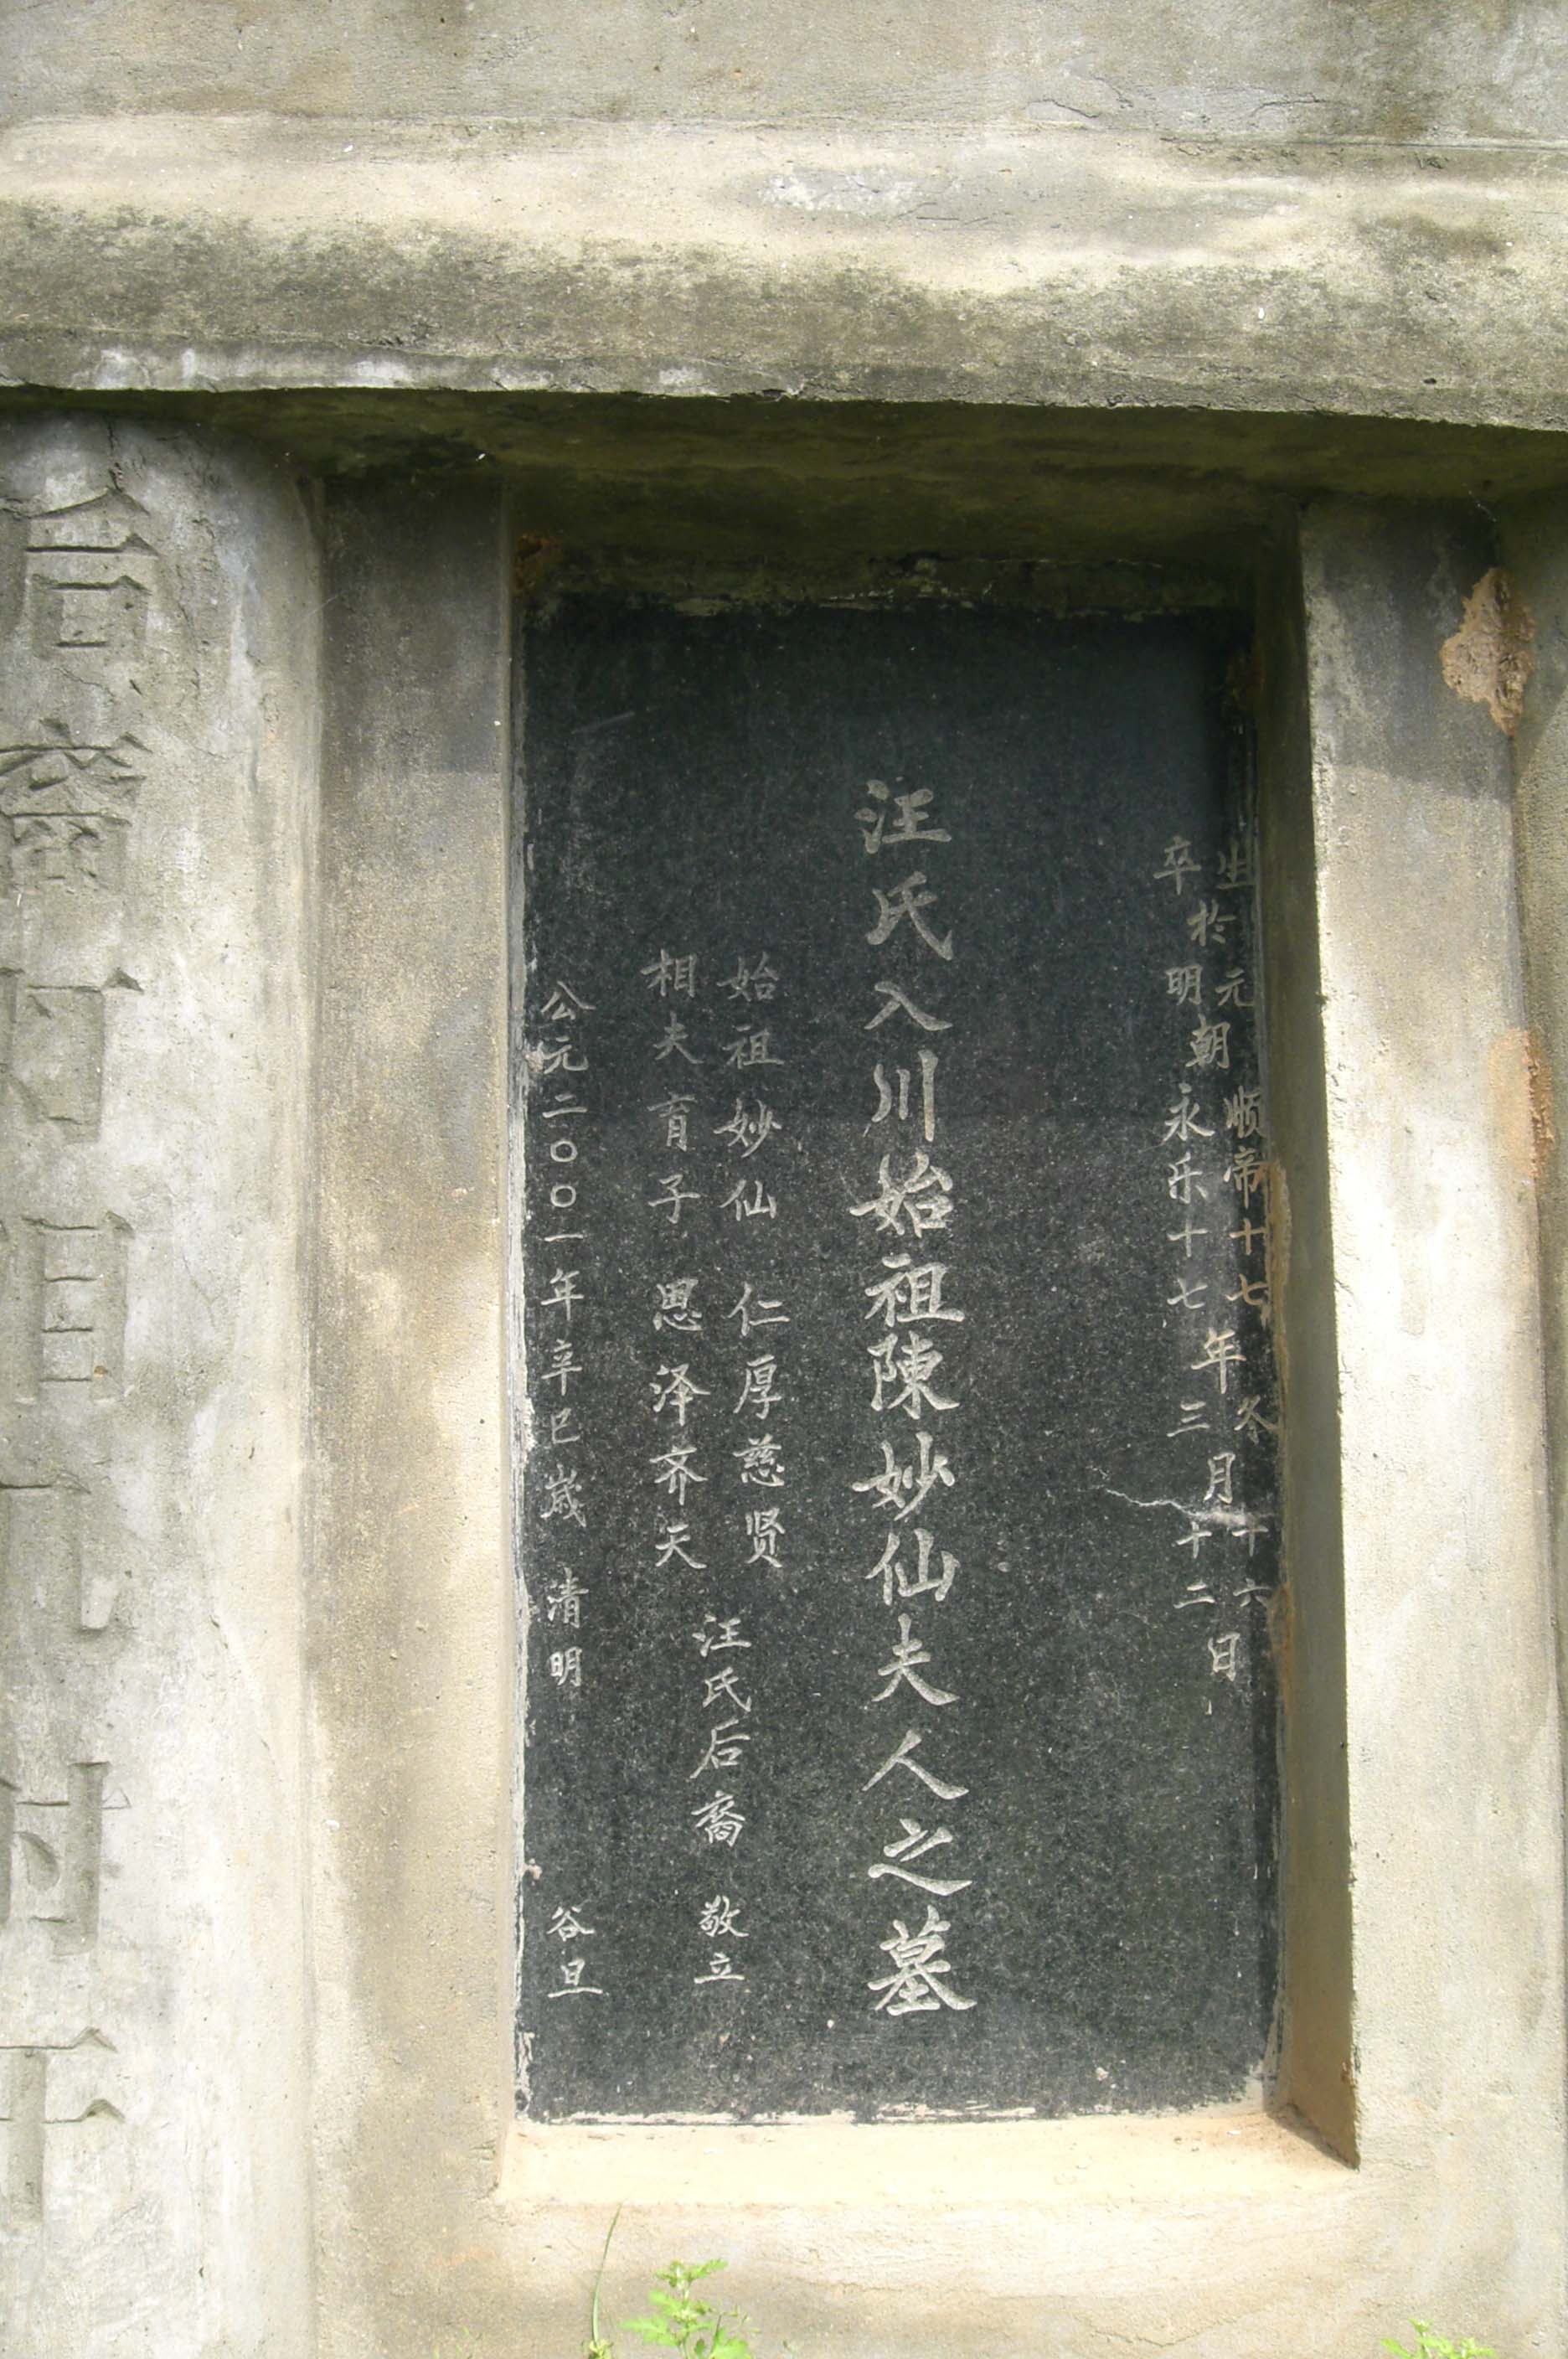 生於元朝顺帝十七年冬月十六日
卒於明朝永乐十七年三月十二日
汪氏入川始祖陳妙仙夫人之墓
始祖妙仙 仁厚慈贤
相夫育子 恩泽齐天
汪氏后裔 敬立
公元二〇〇一年辛巳歲 清明 谷旦